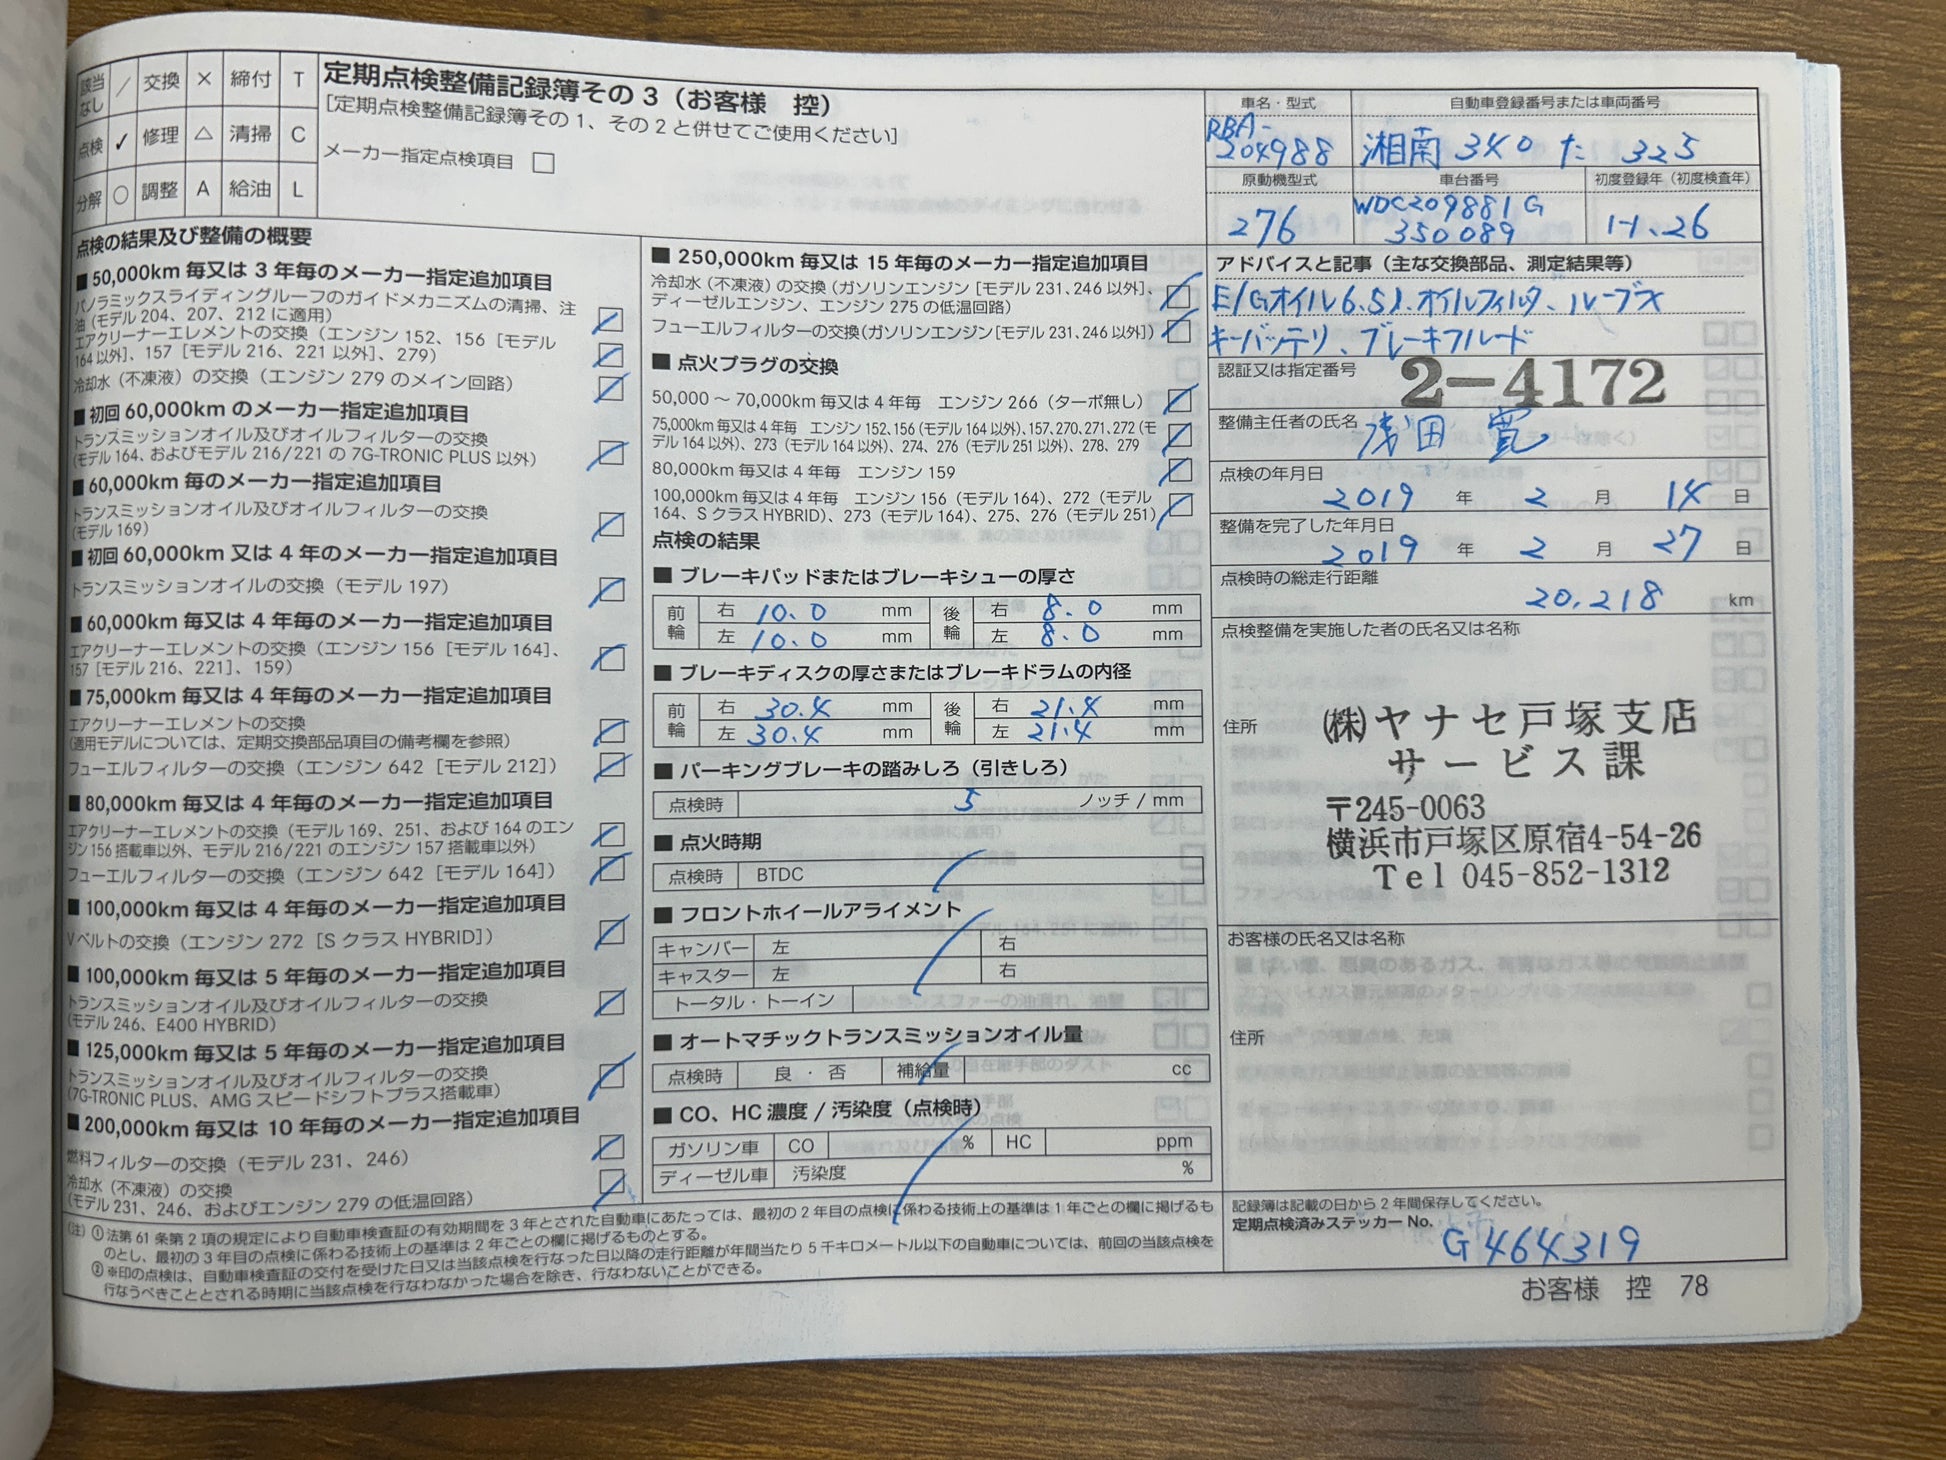 該当なし / 交換 × 締付 T
点検 ✓ 修理 △ 清掃 C
分解 ○ 調整 A 給油 L
定期点検整備記録簿その3（お客様　控）
［定期点検整備記録簿その1、その2と併せてご使用ください］
メーカー指定点検項目 □
車名・型式
RBA-
204988
自動車登録番号または車両番号
湘南 340 た 325
原動機型式
276
車台番号
WDC209881G
350089
初度登録年（初度検査年）
H.26
点検の結果及び整備の概要
■ 50,000km 毎又は 3 年毎のメーカー指定追加項目
パノラミックスライディングルーフのガイドメカニズムの清掃、注
油（モデル 204、207、212 に適用）
エアクリーナーエレメントの交換（エンジン 152、156［モデル
164 以外］、157［モデル 216、221 以外］、279）
冷却水（不凍液）の交換（エンジン 279 のメイン回路）
■ 初回 60,000km のメーカー指定追加項目
トランスミッションオイル及びオイルフィルターの交換
（モデル 164、およびモデル 216/221 の 7G-TRONIC PLUS 以外）
■ 60,000km 毎のメーカー指定追加項目
トランスミッションオイル及びオイルフィルターの交換
（モデル 169）
■ 初回 60,000km 又は 4 年のメーカー指定追加項目
トランスミッションオイルの交換（モデル 197）
■ 60,000km 毎又は 4 年毎のメーカー指定追加項目
エアクリーナーエレメントの交換（エンジン 156［モデル 164］、
157［モデル 216、221］、159）
■ 75,000km 毎又は 4 年毎のメーカー指定追加項目
エアクリーナーエレメントの交換
（適用モデルについては、定期交換部品項目の備考欄を参照）
フューエルフィルターの交換（エンジン 642［モデル 212］）
■ 80,000km 毎又は 4 年毎のメーカー指定追加項目
エアクリーナーエレメントの交換（モデル 169、251、および 164 のエン
ジン 156 搭載車以外、モデル 216/221 のエンジン 157 搭載車以外）
フューエルフィルターの交換（エンジン 642［モデル 164］）
■ 100,000km 毎又は 4 年毎のメーカー指定追加項目
Vベルトの交換（エンジン 272［S クラス HYBRID］）
■ 100,000km 毎又は 5 年毎のメーカー指定追加項目
トランスミッションオイル及びオイルフィルターの交換
（モデル 246、E400 HYBRID）
■ 125,000km 毎又は 5 年毎のメーカー指定追加項目
トランスミッションオイル及びオイルフィルターの交換
（7G-TRONIC PLUS、AMG スピードシフトプラス搭載車）
■ 200,000km 毎又は 10 年毎のメーカー指定追加項目
燃料フィルターの交換（モデル 231、246）
冷却水（不凍液）の交換
（モデル 231、246、およびエンジン 279 の低温回路）
■ 250,000km 毎又は 15 年毎のメーカー指定追加項目
冷却水（不凍液）の交換（ガソリンエンジン［モデル 231、246 以外］、
ディーゼルエンジン、エンジン 275 の低温回路）
フューエルフィルターの交換（ガソリンエンジン［モデル 231、246 以外］）
■ 点火プラグの交換
50,000 ～ 70,000km 毎又は 4 年毎　エンジン 266（ターボ無し）
75,000km 毎又は 4 年毎　エンジン 152、156（モデル 164 以外）、157、270、271、272（モ
デル 164 以外）、273（モデル 164 以外）、274、276（モデル 251 以外）、278、279
80,000km 毎又は 4 年毎　エンジン 159
100,000km 毎又は 4 年毎　エンジン 156（モデル 164）、272（モデル
164、S クラス HYBRID）、273（モデル 164）、275、276（モデル 251）
点検の結果
■ ブレーキパッドまたはブレーキシューの厚さ
前輪 右 10.0 mm 後輪 右 8.0 mm
左 10.0 mm 左 8.0 mm
■ ブレーキディスクの厚さまたはブレーキドラムの内径
前輪 右 30.4 mm 後輪 右 21.4 mm
左 30.4 mm 左 21.4 mm
■ パーキングブレーキの踏みしろ（引きしろ）
点検時 5 ノッチ / mm
■ 点火時期
点検時 BTDC
■ フロントホイールアライメント
キャンバー 左 右
キャスター 左 右
トータル・トーイン
■ オートマチックトランスミッションオイル量
点検時 良 ・ 否 補給量 cc
■ CO、HC 濃度 / 汚染度（点検時）
ガソリン車 CO % HC ppm
ディーゼル車 汚染度 %
アドバイスと記事（主な交換部品、測定結果等）
E/Gオイル6.5l.オイルフィルタ、ルーブメ
キーバッテリ、ブレーキフルード
認証又は指定番号 2-4172
整備主任者の氏名 浅田 寛
点検の年月日
2019 年 2 月 14 日
整備を完了した年月日
2019 年 2 月 27 日
点検時の総走行距離
20,218 km
点検整備を実施した者の氏名又は名称
住所
㈱ヤナセ戸塚支店
サービス課
〒245-0063
横浜市戸塚区原宿4-54-26
Tel 045-852-1312
お客様の氏名又は名称
住所
記録簿は記載の日から 2 年間保存してください。
定期点検済みステッカー No.
G464319
（注）① 法第 61 条第 2 項の規定により自動車検査証の有効期間を 3 年とされた自動車にあたっては、最初の 2 年目の点検に係わる技術上の基準は 1 年ごとの欄に掲げるも
のとし、最初の 3 年目の点検に係わる技術上の基準は 2 年ごとの欄に掲げるものとする。
② ※印の点検は、自動車検査証の交付を受けた日又は当該点検を行なった日以降の走行距離が年間当たり 5 千キロメートル以下の自動車については、前回の当該点検を
行なうべきこととされる時期に当該点検を行なわなかった場合を除き、行なわないことができる。
お客様　控　78